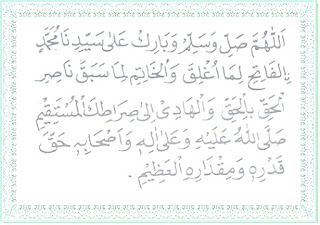 اَللّٰهُمَّ صَلِّ وَسَلِّمْ وَبَارِكْ عَلٰى سَيِّدِنَا مُحَمَّدٍ
بِالْفَاتِحِ لِمَا اُغْلِقَ وَالْخَاتِمِ لِمَا سَبَقَ نَاصِرِ
الْحَقِّ بِالْحَقِّ وَالْهَادِى اِلٰى صِرَاطِكَ الْمُسْتَقِيْمِ
صَلَّى اللهُ عَلَيْهِ وَعَلٰى اٰلِهٖ وَاَصْحَابِهٖ حَقَّ
قَدْرِهٖ وَمِقْدَارِهِ الْعَظِيْمِ .